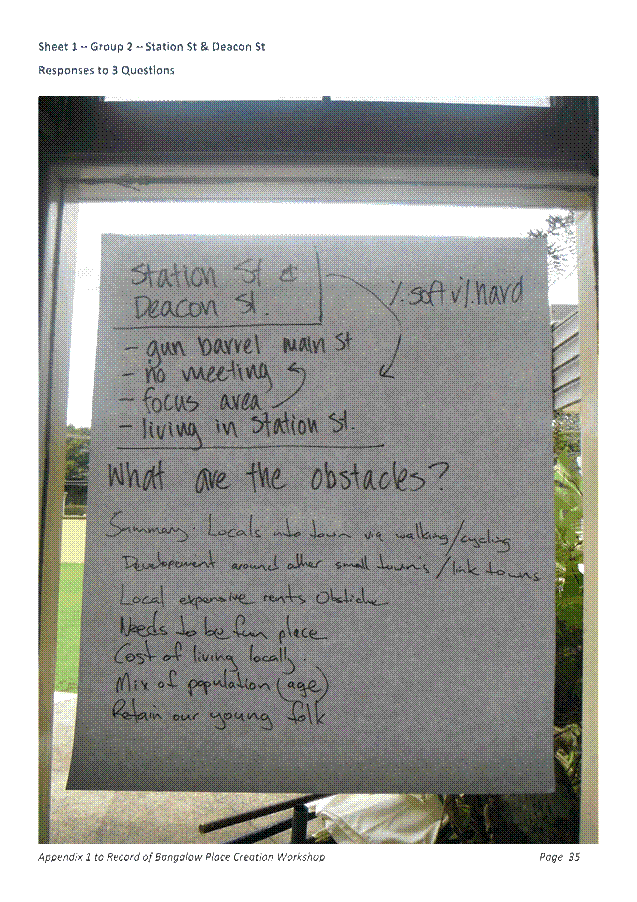 Sheet 1 – Group 2 – Station St & Deacon St
Responses to 3 Questions
Station St &
Deacon St.
%soft v %hard
- gun barrel main St
- no meeting
- focus area
- living in Station St.
What are the obstacles?
Summary. Locals into town via walking/cycling
Development around other small town's / link towns
Local expensive rents Obsticle
Needs to be fun place
Cost of living locally.
Mix of population (age)
Retain our young folk
Appendix 1 to Record of Bangalow Place Creation Workshop
Page 35